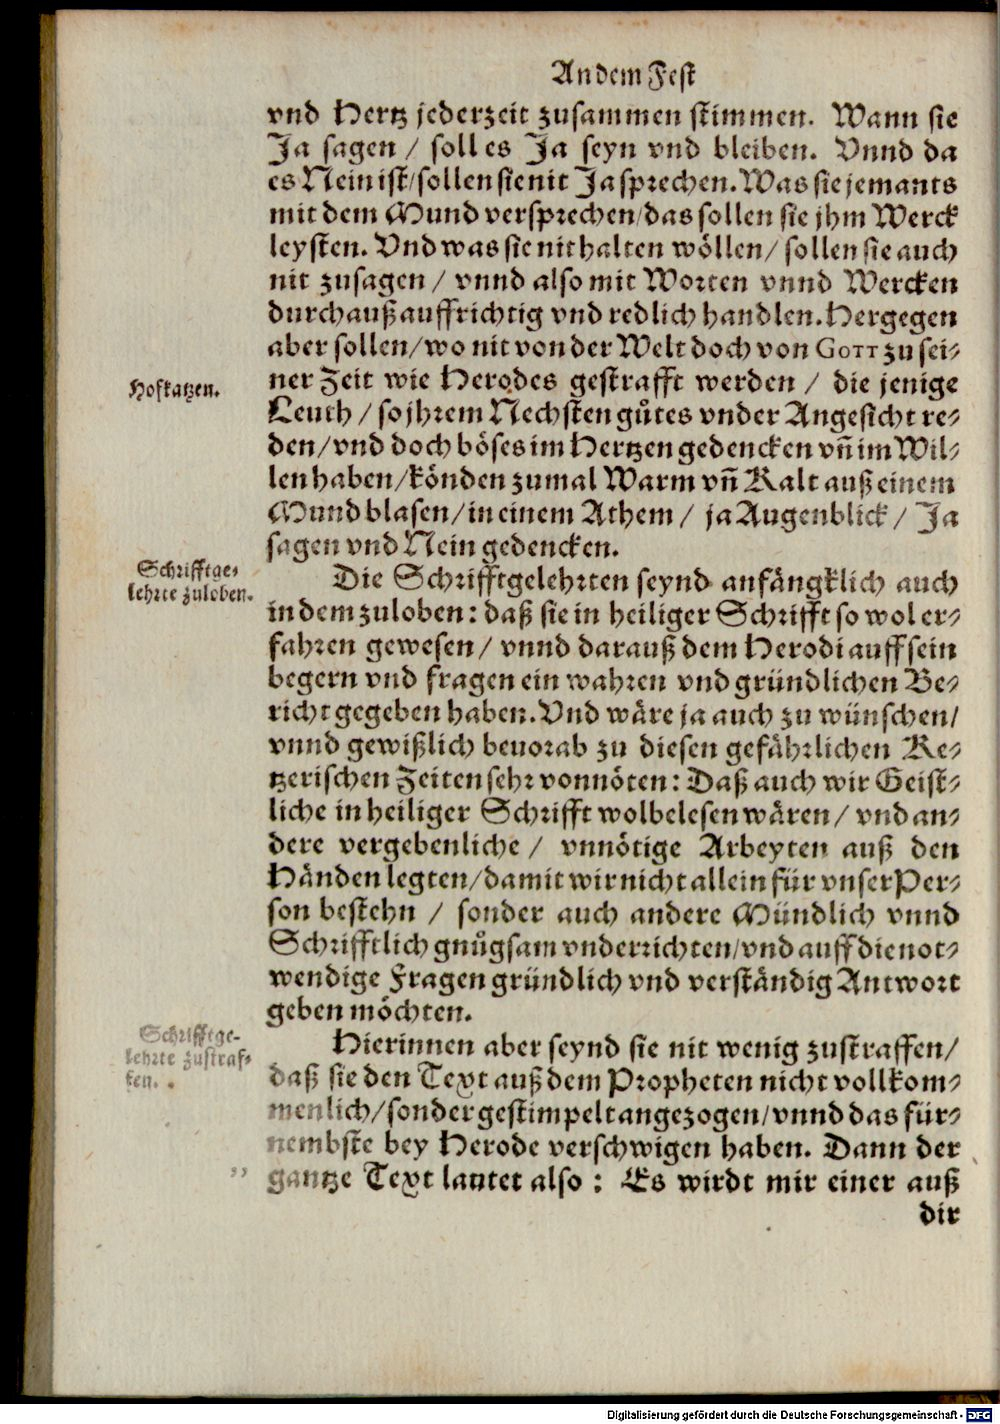 An dem Fest
vnd Hertz jederzeit zusammen stimmen. Wann sie
Ja sagen / soll es Ja seyn vnd bleiben. Vnnd da
es Nein ist / sollen sie nit Ja sprechen. Was sie jemants
mit dem Mund versprechen / das sollen sie jhm Werck
leysten. Vnd was sie nit halten wöllen / sollen sie auch
nit zusagen / vnnd also mit Worten vnnd Wercken
durchauß auffrichtig vnd redlich handlen. Hergegen
aber sollen / wo nit von der Welt doch von GOTT zu sei-
Hofkatzen.
ner Zeit wie Herodes gestrafft werden / die jenige
Leuth / so jhrem Nechsten gůtes vnder Angesicht re-
den / vnd doch böses im Hertzen gedencken vñ im Wil-
len haben / könden zumal Warm vñ Kalt auß einem
Mund blasen / in einem Athem / ja Augenblick / Ja
sagen vnd Nein gedencken.
Schrifftge-
lehrte zuloben.
Die Schrifftgelehrten seynd anfängklich auch
in dem zuloben: daß sie in heiliger Schrifft so wol er-
fahren gewesen / vnnd darauß dem Herodi auff sein
begern vnd fragen ein wahren vnd gründlichen Be-
richt gegeben haben. Vnd wäre ja auch zu wünschen /
vnnd gewißlich beuorab zu diesen gefährlichen Ke-
tzerischen Zeiten sehr vonnöten: Daß auch wir Geist-
liche in heiliger Schrifft wolbelesen wären / vnd an-
dere vergebenliche / vnnötige Arbeyten auß den
Händen legten / damit wir nicht allein für vnser Per-
son bestehn / sonder auch andere Mündlich vnnd
Schrifftlich gnůgsam vnderrichten / vnd auff die not-
wendige Fragen gründlich vnd verständig Antwort
geben möchten.
Schrifftge-
lehrte zustraf-
fen.
Hierinnen aber seynd sie nit wenig zustraffen /
daß sie den Text auß dem Propheten nicht vollkom-
menlich / sonder gestimpelt angezogen / vnnd das für-
nembste bey Herode verschwigen haben. Dann der
” gantze Text lautet also: Es wirdt mir einer auß
dir
Digitalisierung gefördert durch die Deutsche Forschungsgemeinschaft - DFG